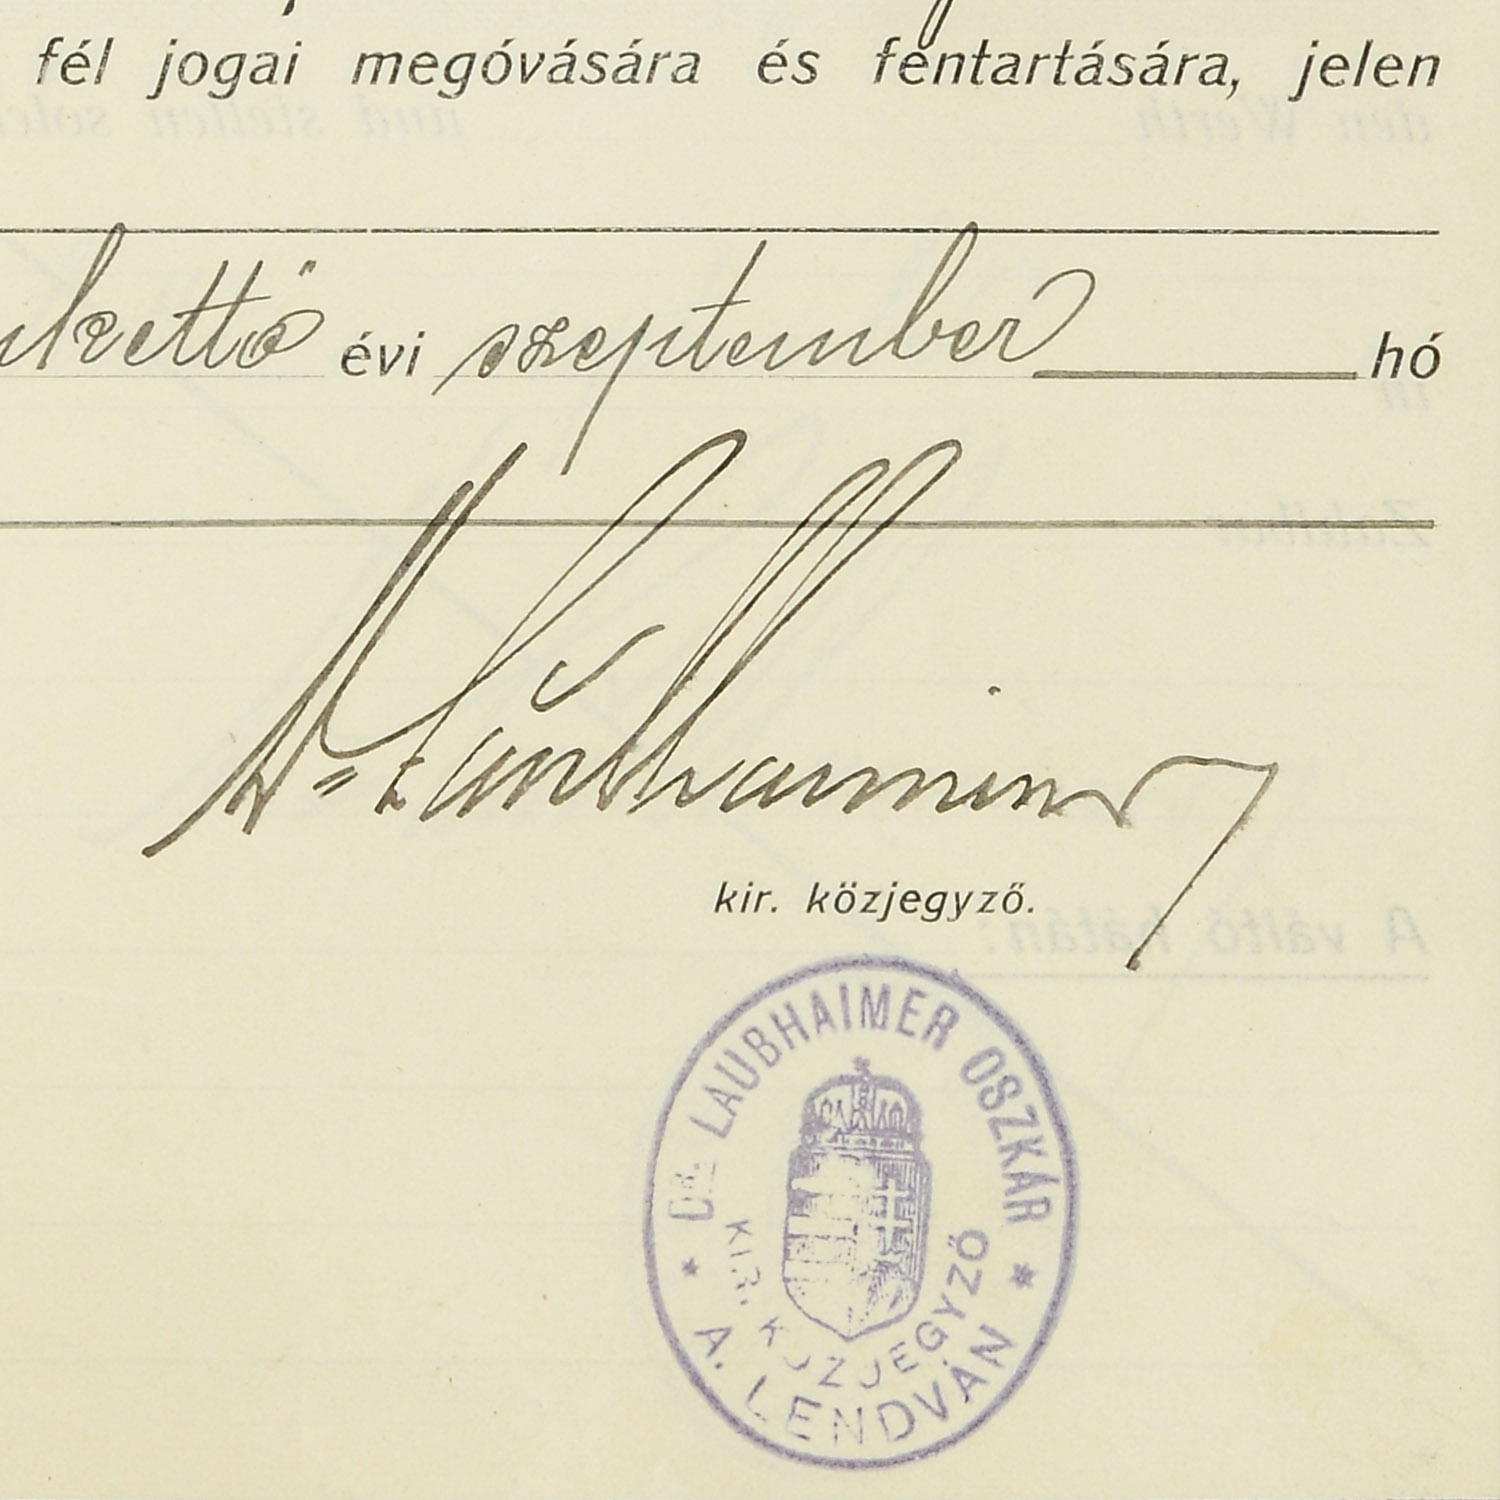 fél jogai megóvására és fentartására, jelen
kettő évi szeptember hó
Dr Laubhaimer
kir. közjegyző.
DR. LAUBHAIMER OSZKÁR
KIR. KÖZJEGYZŐ
A. LENDVÁN
A váltó hátán: